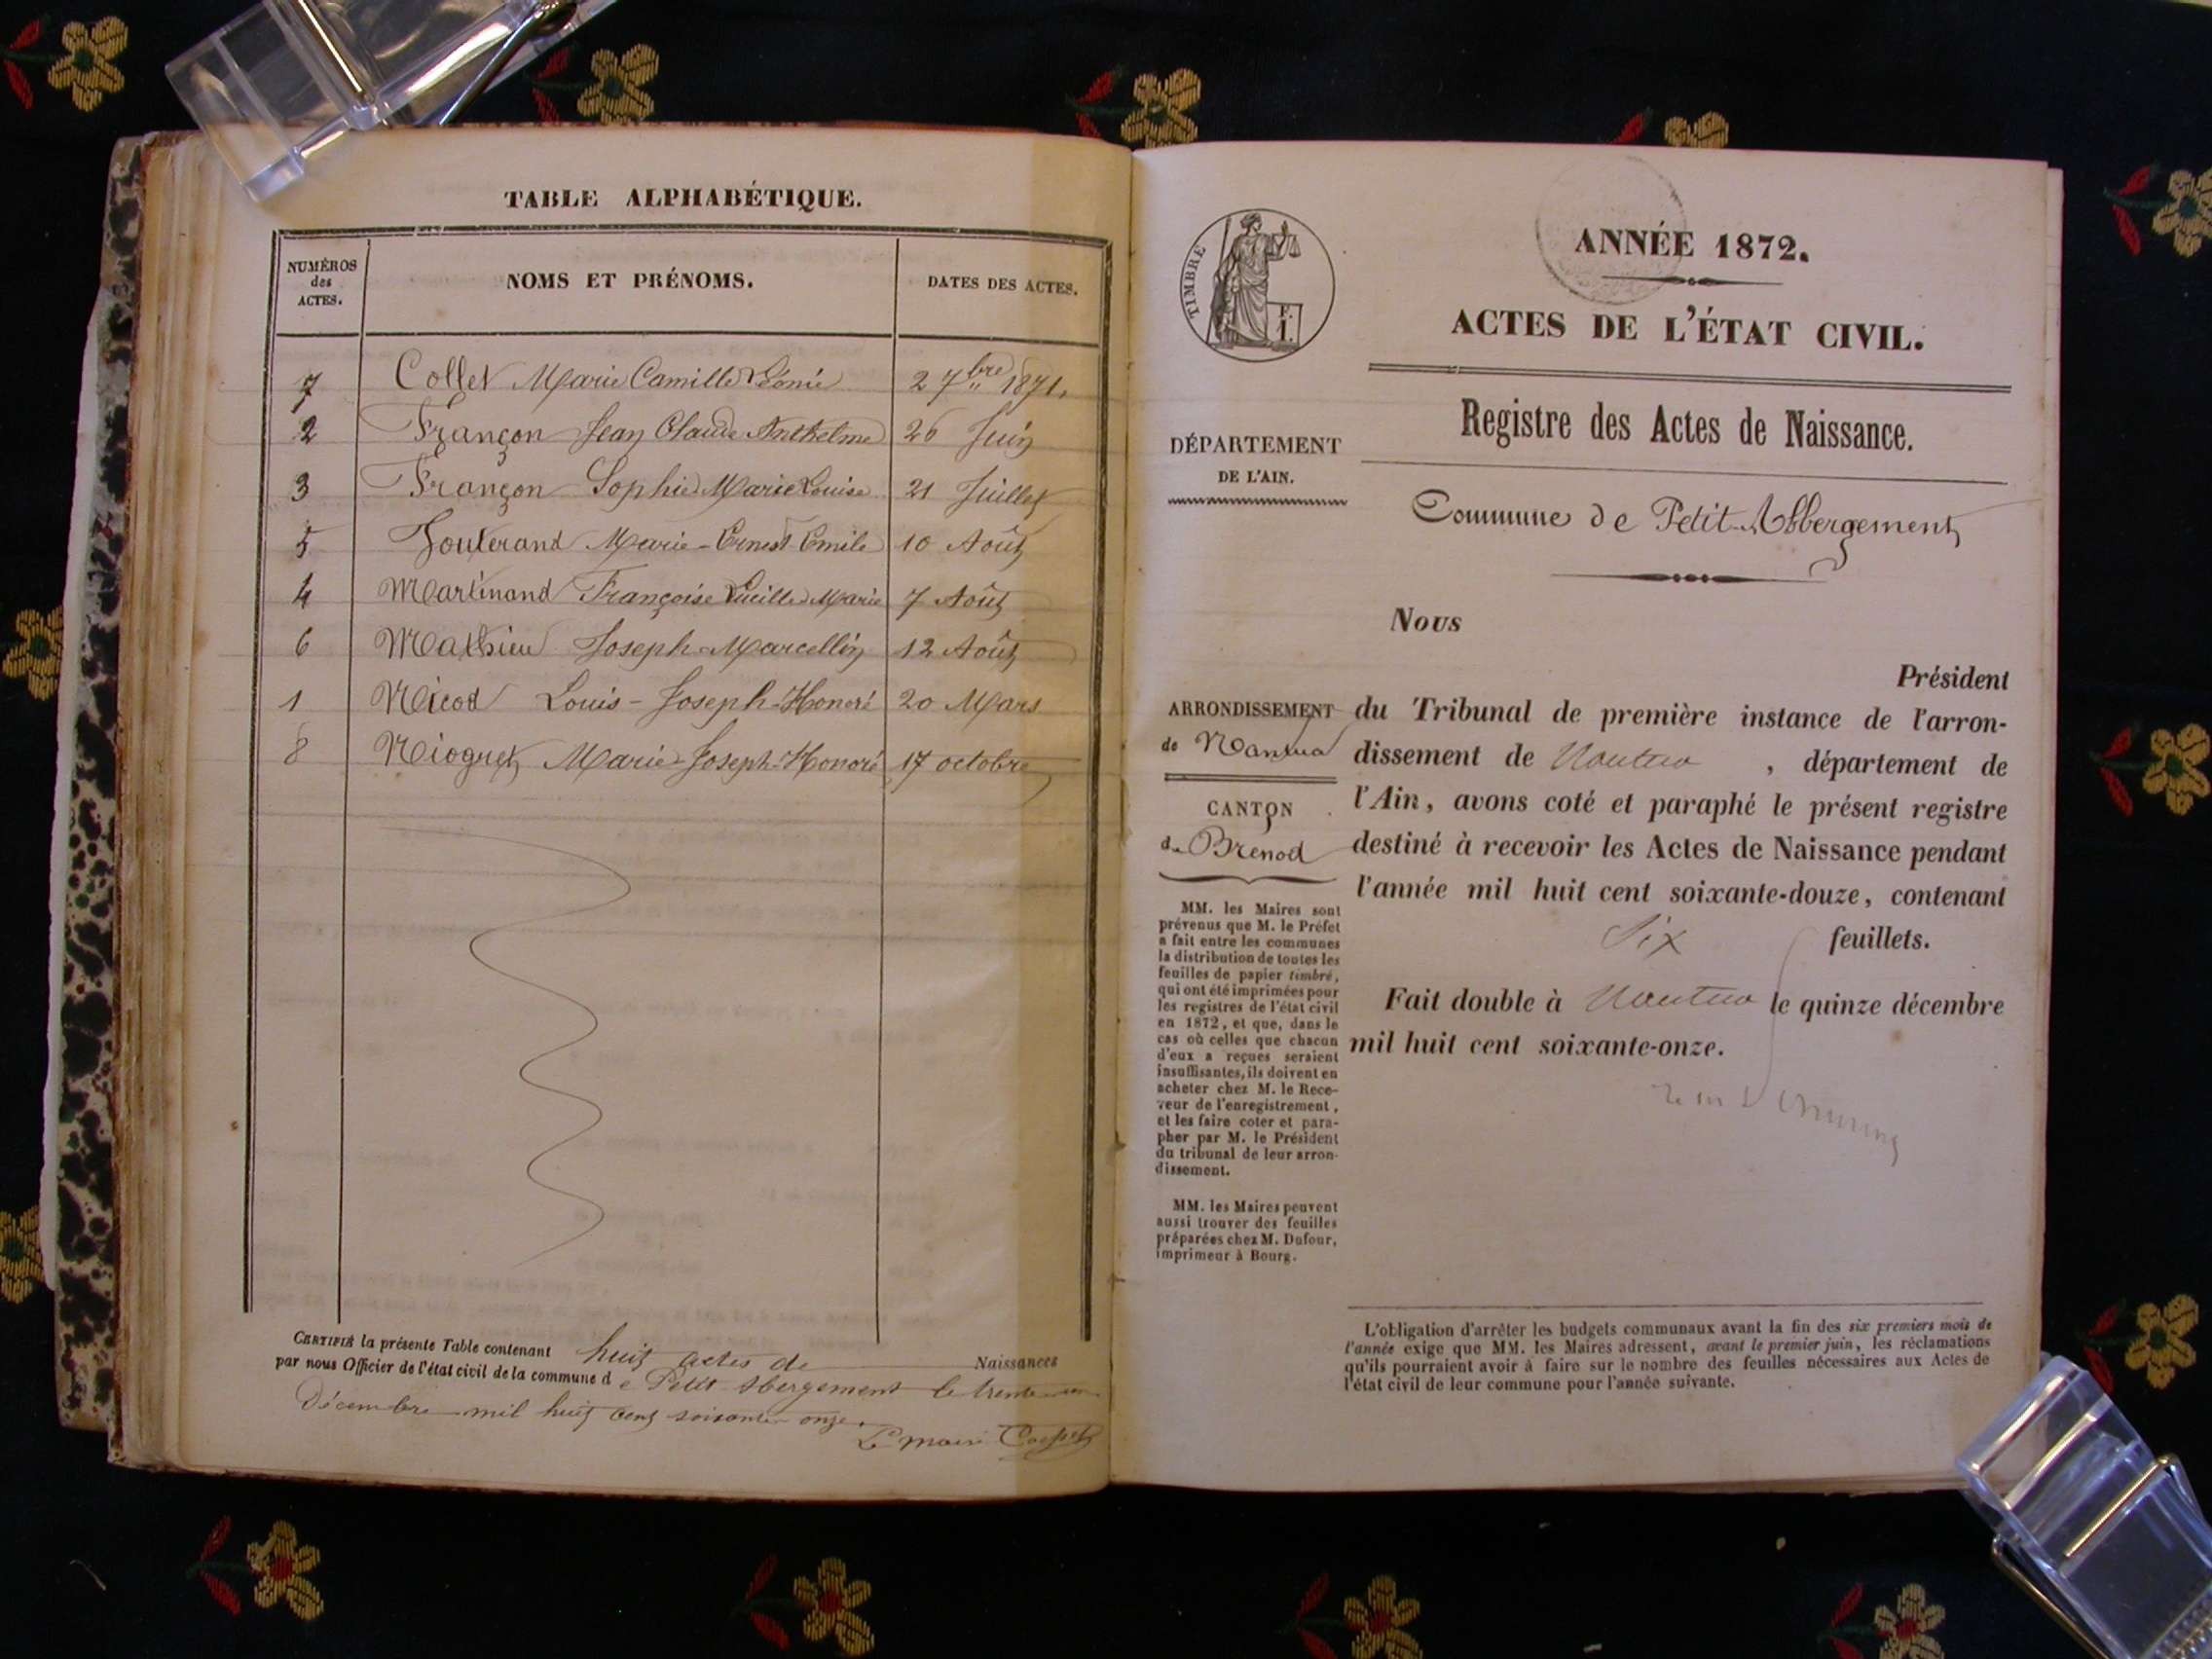 TABLE ALPHABÉTIQUE.
NUMÉROS
des
ACTES.
NOMS ET PRÉNOMS.
DATES DES ACTES.
7 Collet Marie Camille Léonie 2 7bre 1871.
2 Françon Jean Claude Anthelme 26 Juin
3 Françon Sophie Marie Louise 21 Juillet
5 Jouterand Marie-Ernest-Emile 10 Août
4 Martinand Françoise Lucille Marie 7 Août
6 Mathieu Joseph-Marcellin 12 Août
1 Nicod Louis-Joseph-Honoré 20 Mars
8 Niogret Marie-Joseph-Honoré 17 octobre
CERTIFIÉ la présente Table contenant huit actes de Naissances
par nous Officier de l'état civil de la commune de Petit-Abergement le trente un
Décembre mil huit cent soixante-onze.
Le maire
TIMBRE
F.
1.
ANNÉE 1872.
ACTES DE L'ÉTAT CIVIL.
Registre des Actes de Naissance.
DÉPARTEMENT
DE L'AIN.
Commune de Petit-Abbergement
Nous
Président
du Tribunal de première instance de l'arron-
dissement de Nantua , département de
l'Ain, avons coté et paraphé le présent registre
destiné à recevoir les Actes de Naissance pendant
l'année mil huit cent soixante-douze, contenant
Six feuillets.
Fait double à Nantua le quinze décembre
mil huit cent soixante-onze.
ARRONDISSEMENT
de Nantua
CANTON
de Brenod
MM. les Maires sont
prévenus que M. le Préfet
a fait entre les communes
la distribution de toutes les
feuilles de papier timbré,
qui ont été imprimées pour
les registres de l'état civil
en 1872, et que, dans le
cas où celles que chacun
d'eux a reçues seraient
insuffisantes, ils doivent en
acheter chez M. le Rece-
veur de l'enregistrement,
et les faire coter et para-
pher par M. le Président
du tribunal de leur arron-
dissement.
MM. les Maires peuvent
aussi trouver des feuilles
préparées chez M. Dufour,
imprimeur à Bourg.
L'obligation d'arrêter les budgets communaux avant la fin des six premiers mois de
l'année exige que MM. les Maires adressent, avant le premier juin, les réclamations
qu'ils pourraient avoir à faire sur le nombre des feuilles nécessaires aux Actes de
l'état civil de leur commune pour l'année suivante.